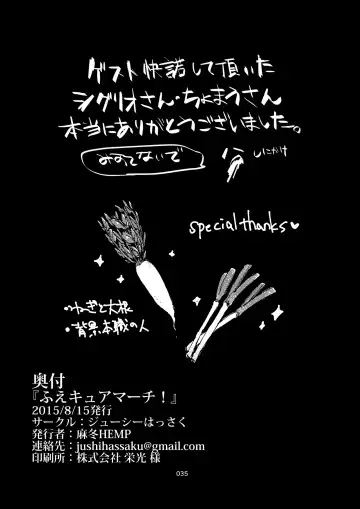 ゲスト快諾して頂いた
シグリオさん・ちょまうさん
本当にありがとうございました。
みすてないで
special thanks♥
・ねぎと大根
・背景本職の人
奥付
『ふえキュアマーチ!』
2015/8/15発行
サークル:ジューシーはっさく
発行者:麻冬HEMP
連絡先:jushihassaku@gmail.com
印刷所:株式会社 栄光 様
035